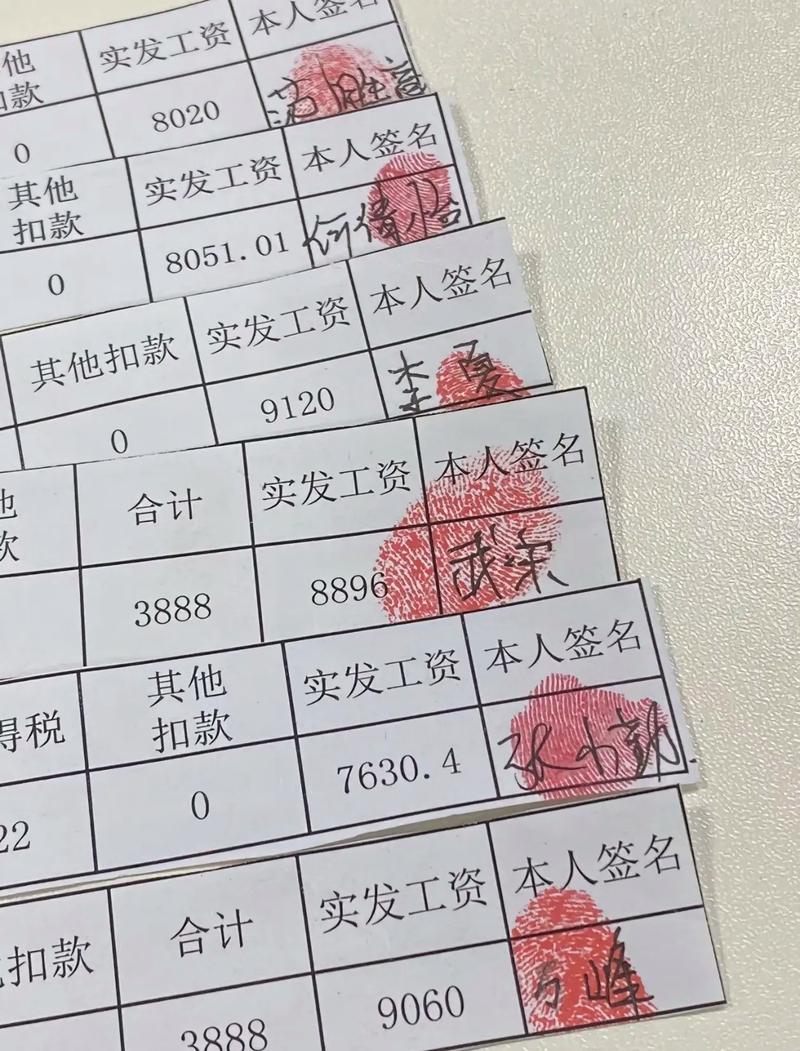 他 实发工资 本人签名
扣款
0 8020
其他 实发工资 本人签名
扣款
0 8051.01 何倩怡
其他扣款 实发工资 本人签名
0 9120 李夏
他 合计 实发工资 本人签名
款
3888 8896 武宗
得税 其他 实发工资 本人签名
扣款
22 0 7630.4
扣款 合计 实发工资 本人签名
3888 9060